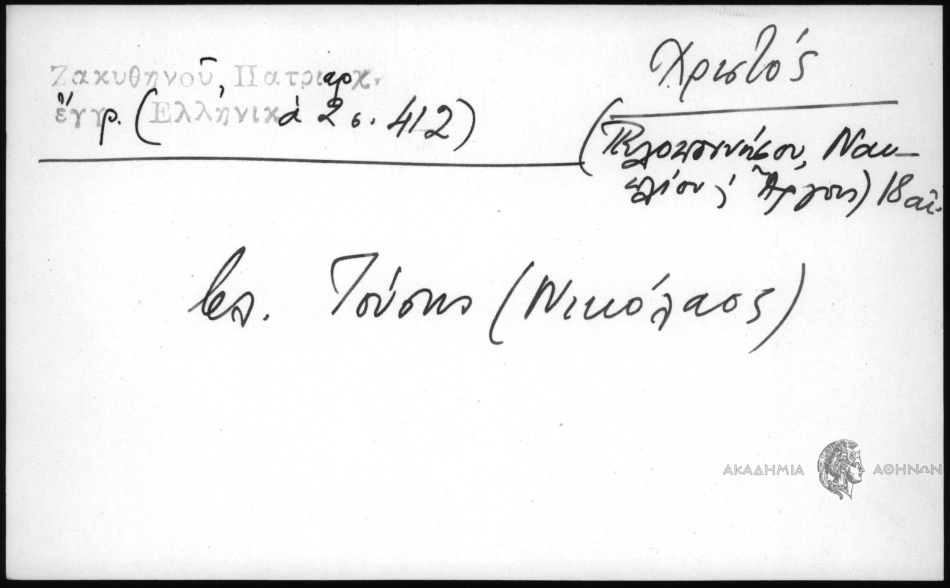 Ζακυθηνοῦ, Πατριαρχ.
ἔγγρ. (Ἑλληνικά 2 σ. 412)
Χριστός
(Πελοποννήσου, Ναυ-
πλίου ς Ἄργους) 18 αἰ.
βλ. Τούσης (Νικόλαος)
ΑΚΑΔΗΜΙΑ ΑΘΗΝΩΝ